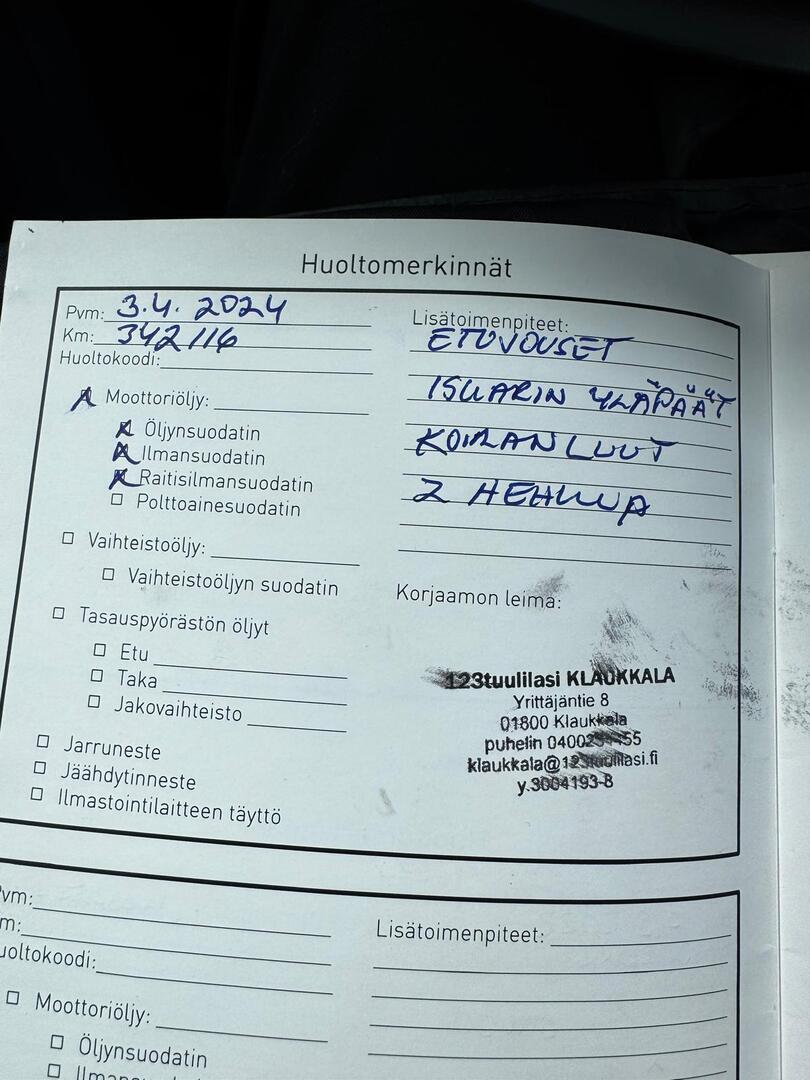 Huoltomerkinnät
Pvm: 3.4. 2024
Km: 342116
Huoltokoodi:
Moottoriöljy:
Öljynsuodatin
Ilmansuodatin
Raitisilmansuodatin
Polttoainesuodatin
Vaihteistoöljy:
Vaihteistoöljyn suodatin
Tasauspyörästön öljyt
Etu
Taka
Jakovaihteisto
Jarruneste
Jäähdytinneste
Ilmastointilaitteen täyttö
Lisätoimenpiteet:
ETUVOUSET
ISKARIN YLÄPÄÄT
KOIRANLUUT
2 HEHKUA
Korjaamon leima:
123tuulilasi KLAUKKALA
Yrittäjäntie 8
01800 Klaukkala
puhelin
klaukkala@123tuulilasi.fi
y.3004193-8
Pvm:
Km:
Huoltokoodi:
Moottoriöljy:
Öljynsuodatin
Lisätoimenpiteet: